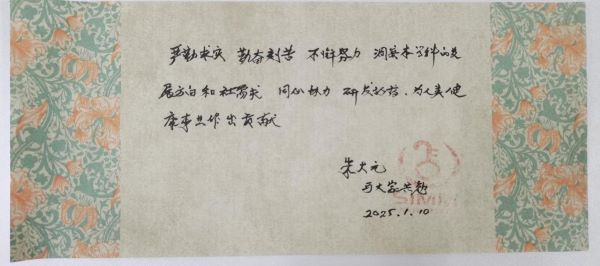 严勤求实 勤奋刻苦 不懈努力 洞察本学科的发
展方向和社需求 同心协力 研发新药，为人类健
康事业作出贡献
朱大元
与大家共勉
2025.1.10
SIMM